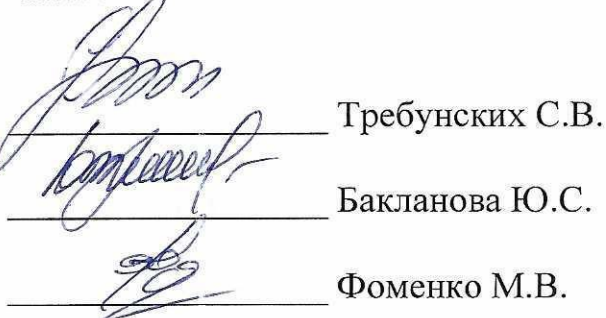 Требунских С.В.
Бакланова Ю.С.
Фоменко М.В.